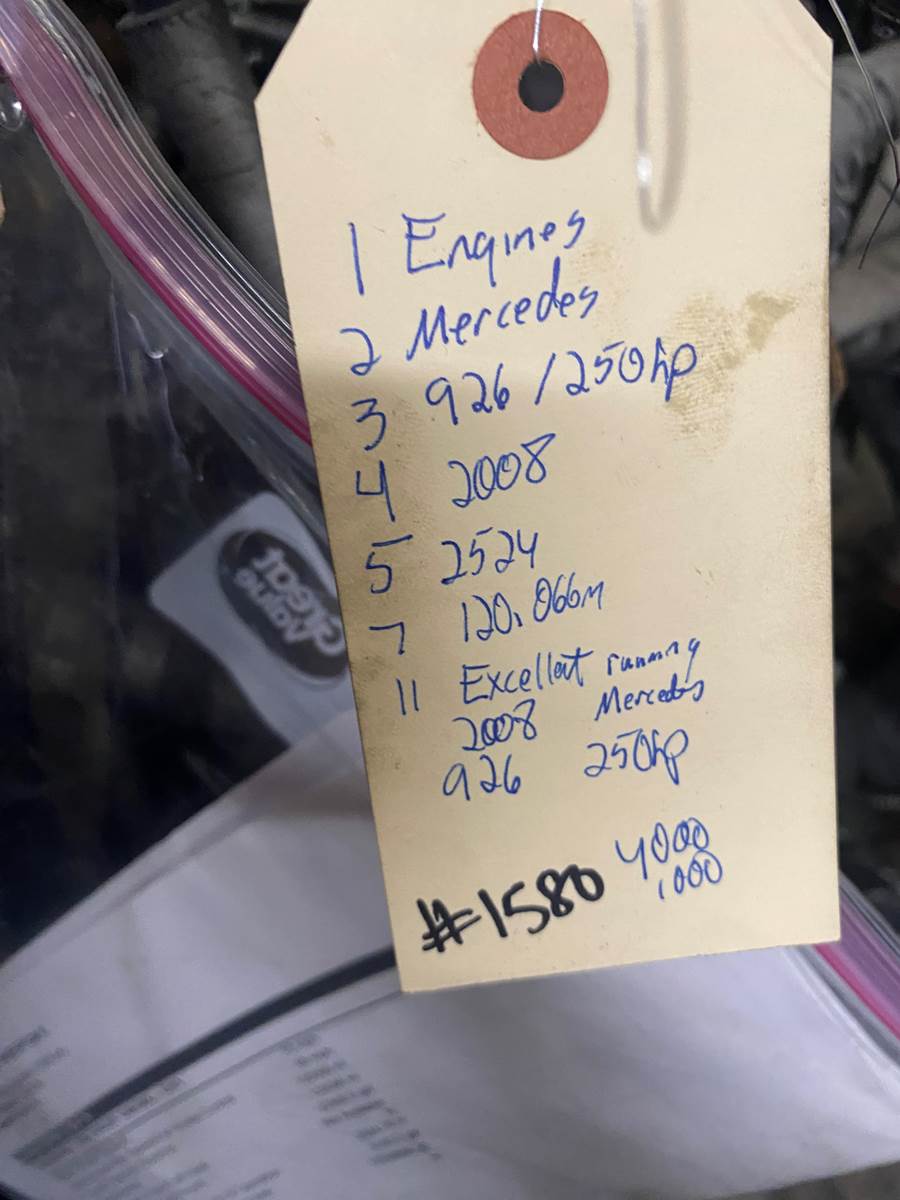 1 Engines
2 Mercedes
3 926 / 250hp
4 2008
5 2524
7 120,066m
11 Excellent running
2008 Mercedes
926 250hp
4000
1000
#1580